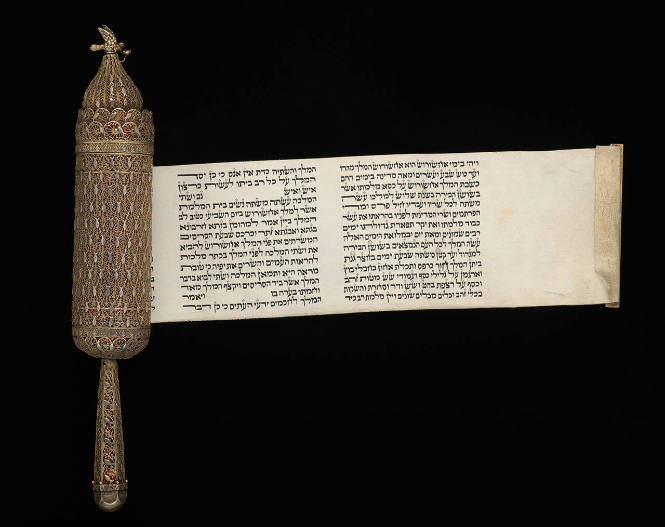 ויהי בימי אחשורוש הוא אחשורוש המלך מהדו
ועד כוש שבע ועשרים ומאה מדינה בימים ההם
כשבת המלך אחשורוש על כסא מלכותו אשר
בשושן הבירה בשנת שלוש למלכו עשה
משתה לכל שריו ועבדיו חיל פרס ומדי
הפרתמים ושרי המדינות לפניו בהראתו את עשר
כבוד מלכותו ואת יקר תפארת גדולתו ימים
רבים שמונים ומאת יום ובמלואת הימים האלה
עשה המלך לכל העם הנמצאים בשושן הבירה
למגדול ועד קטן משתה שבעת ימים בחצר גנת
ביתן המלך חור כרפס ותכלת אחוז בחבלי בוץ
וארגמן על גלילי כסף ועמודי שש מטות זהב
וכסף על רצפת בהט ושש ודר וסחרת והשקות
בכלי זהב וכלים מכלים שונים ויין מלכות רב כיד
המלך והשתיה כדת אין אנס כי כן יסד
המלך על כל רב ביתו לעשות כרצון
איש ואיש גם ושתי
המלכה עשתה משתה נשים בית המלכות
אשר למלך אחשורוש ביום השביעי כטוב לב
המלך ביין אמר למהומן בזתא חרבונא
בגתא ואבגתא זתר וכרכס שבעת הסריסים
המשרתים את פני המלך אחשורוש להביא
את ושתי המלכה לפני המלך בכתר מלכות
להראות העמים והשרים את יפיה כי טובת
מראה היא ותמאן המלכה ושתי לבוא בדבר
המלך אשר ביד הסריסים ויקצף המלך מאד
וחמתו בערה בו ויאמר
המלך לחכמים ידעי העתים כי כן דבר